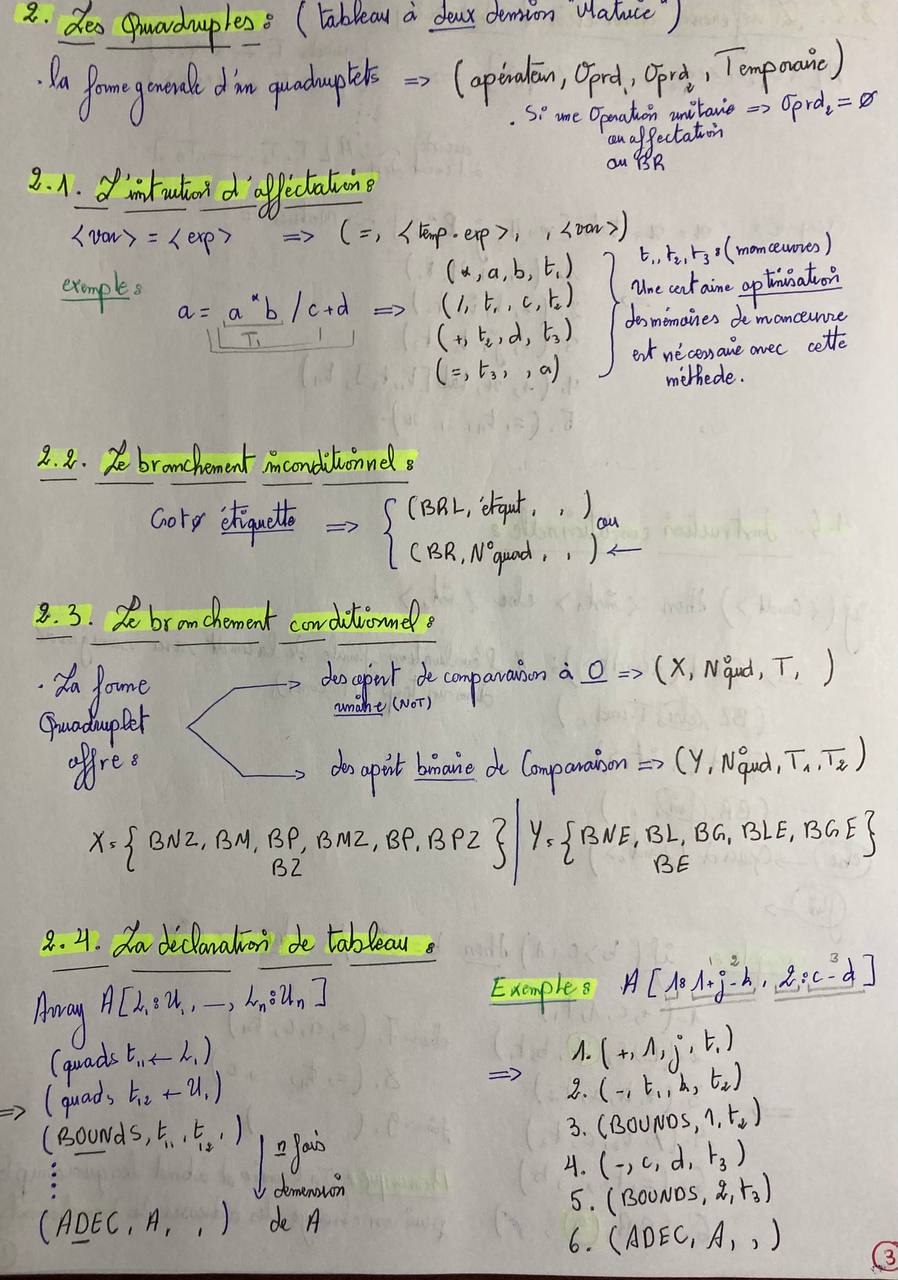 2. Les Quadruples : ( tableau à deux dension "Matrice" )
. la forme generale d'un quadruplets => (opérateur, Oprd₁, Oprd₂, Temporaire)
. Si une Operation unitaire => Oprd₂ = ∅
ou affectation
ou BR
2.1. L'intruction d'affectation :
<var> = <exp> => ( =, <temp.exp>, , <var>)
exemple :
a = a * b / c + d =>
T₁
(*, a, b, t₁)
(/, t₁, c, t₂)
(+, t₂, d, t₃)
(=, t₃, , a)
t₁, t₂, t₃ : (manœuvres)
Une certaine optimisation
des mémoires de manœuvre
est nécessaire avec cette
méthede.
2.2. Le branchement inconditionnel :
Goto étiquette =>
(BRL, étiqut, , ) ou
(BR, N° quad, , ) ←
2.3. Le branchement conditionnel :
. La forme
Quadruplet
offre :
des opért de comparaison à 0 => (X, N° qud, T, )
unaire (NOT)
des opért binaire de Comparaison => (Y, N° qud, T₁, T₂)
X = { BNZ, BM, BP, BMZ, BP, BPZ } | Y = { BNE, BL, BG, BLE, BGE }
BZ BE
2.4. La déclaration de tableau :
Array A [L₁:U₁, —, Lₙ:Uₙ]
(quads t₁₁ ← L₁)
=> (quads t₁₂ ← U₁)
(BOUNdS, t₁₁, t₁₂, )
n fois
demension
de A
(ADEC, A, , )
Exemple : A [1:1+j-k, 2:c-d]
1 2 3
=>
1. (+, 1, j, t₁)
2. (-, t₁, k, t₂)
3. (BOUNDS, 1, t₂)
4. (-, c, d, t₃)
5. (BOUNDS, 2, t₃)
6. (ADEC, A, , )
3